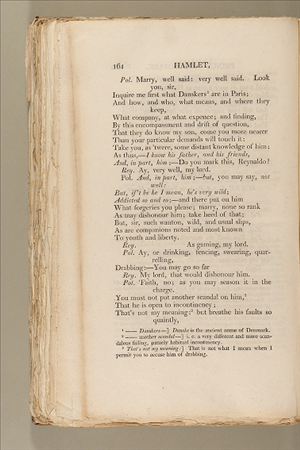 164 HAMLET,
Pol. Marry, well said: very well said. Look
you, sir,
Inquire me first what Danskers¹ are in Paris;
And how, and who, what means, and where they
keep,
What company, at what expence; and finding,
By this encompassment and drift of question,
That they do know my son, come you more nearer
Than your particular demands will touch it:
Take you, as 'twere, some distant knowledge of him;
As thus,—I know his father, and his friends,
And, in part, him;—Do you mark this, Reynaldo?
Rey. Ay, very well, my lord.
Pol. And, in part, him;—but, you may say, not
well:
But, if't be he I mean, he's very wild;
Addicted so and so;—and there put on him
What forgeries you please; marry, none so rank
As may dishonour him; take heed of that;
But, sir, such wanton, wild, and usual slips,
As are companions noted and most known
To youth and liberty.
Rey. As gaming, my lord.
Pol. Ay, or drinking, fencing, swearing, quar-
relling,
Drabbing:—You may go so far
Rey. My lord, that would dishonour him.
Pol. 'Faith, no; as you may season it in the
charge.
You must not put another scandal on him,²
That he is open to incontinency;
That's not my meaning:³ but breathe his faults so
quaintly,
¹ —— Danskers—] Danske is the ancient name of Denmark.
² —— another scandal—] i. e. a very different and more scan-
dalous failing, habitual incontinency.
³ That's not my meaning:] That is not what I mean when I
permit you to accuse him of drabbing.